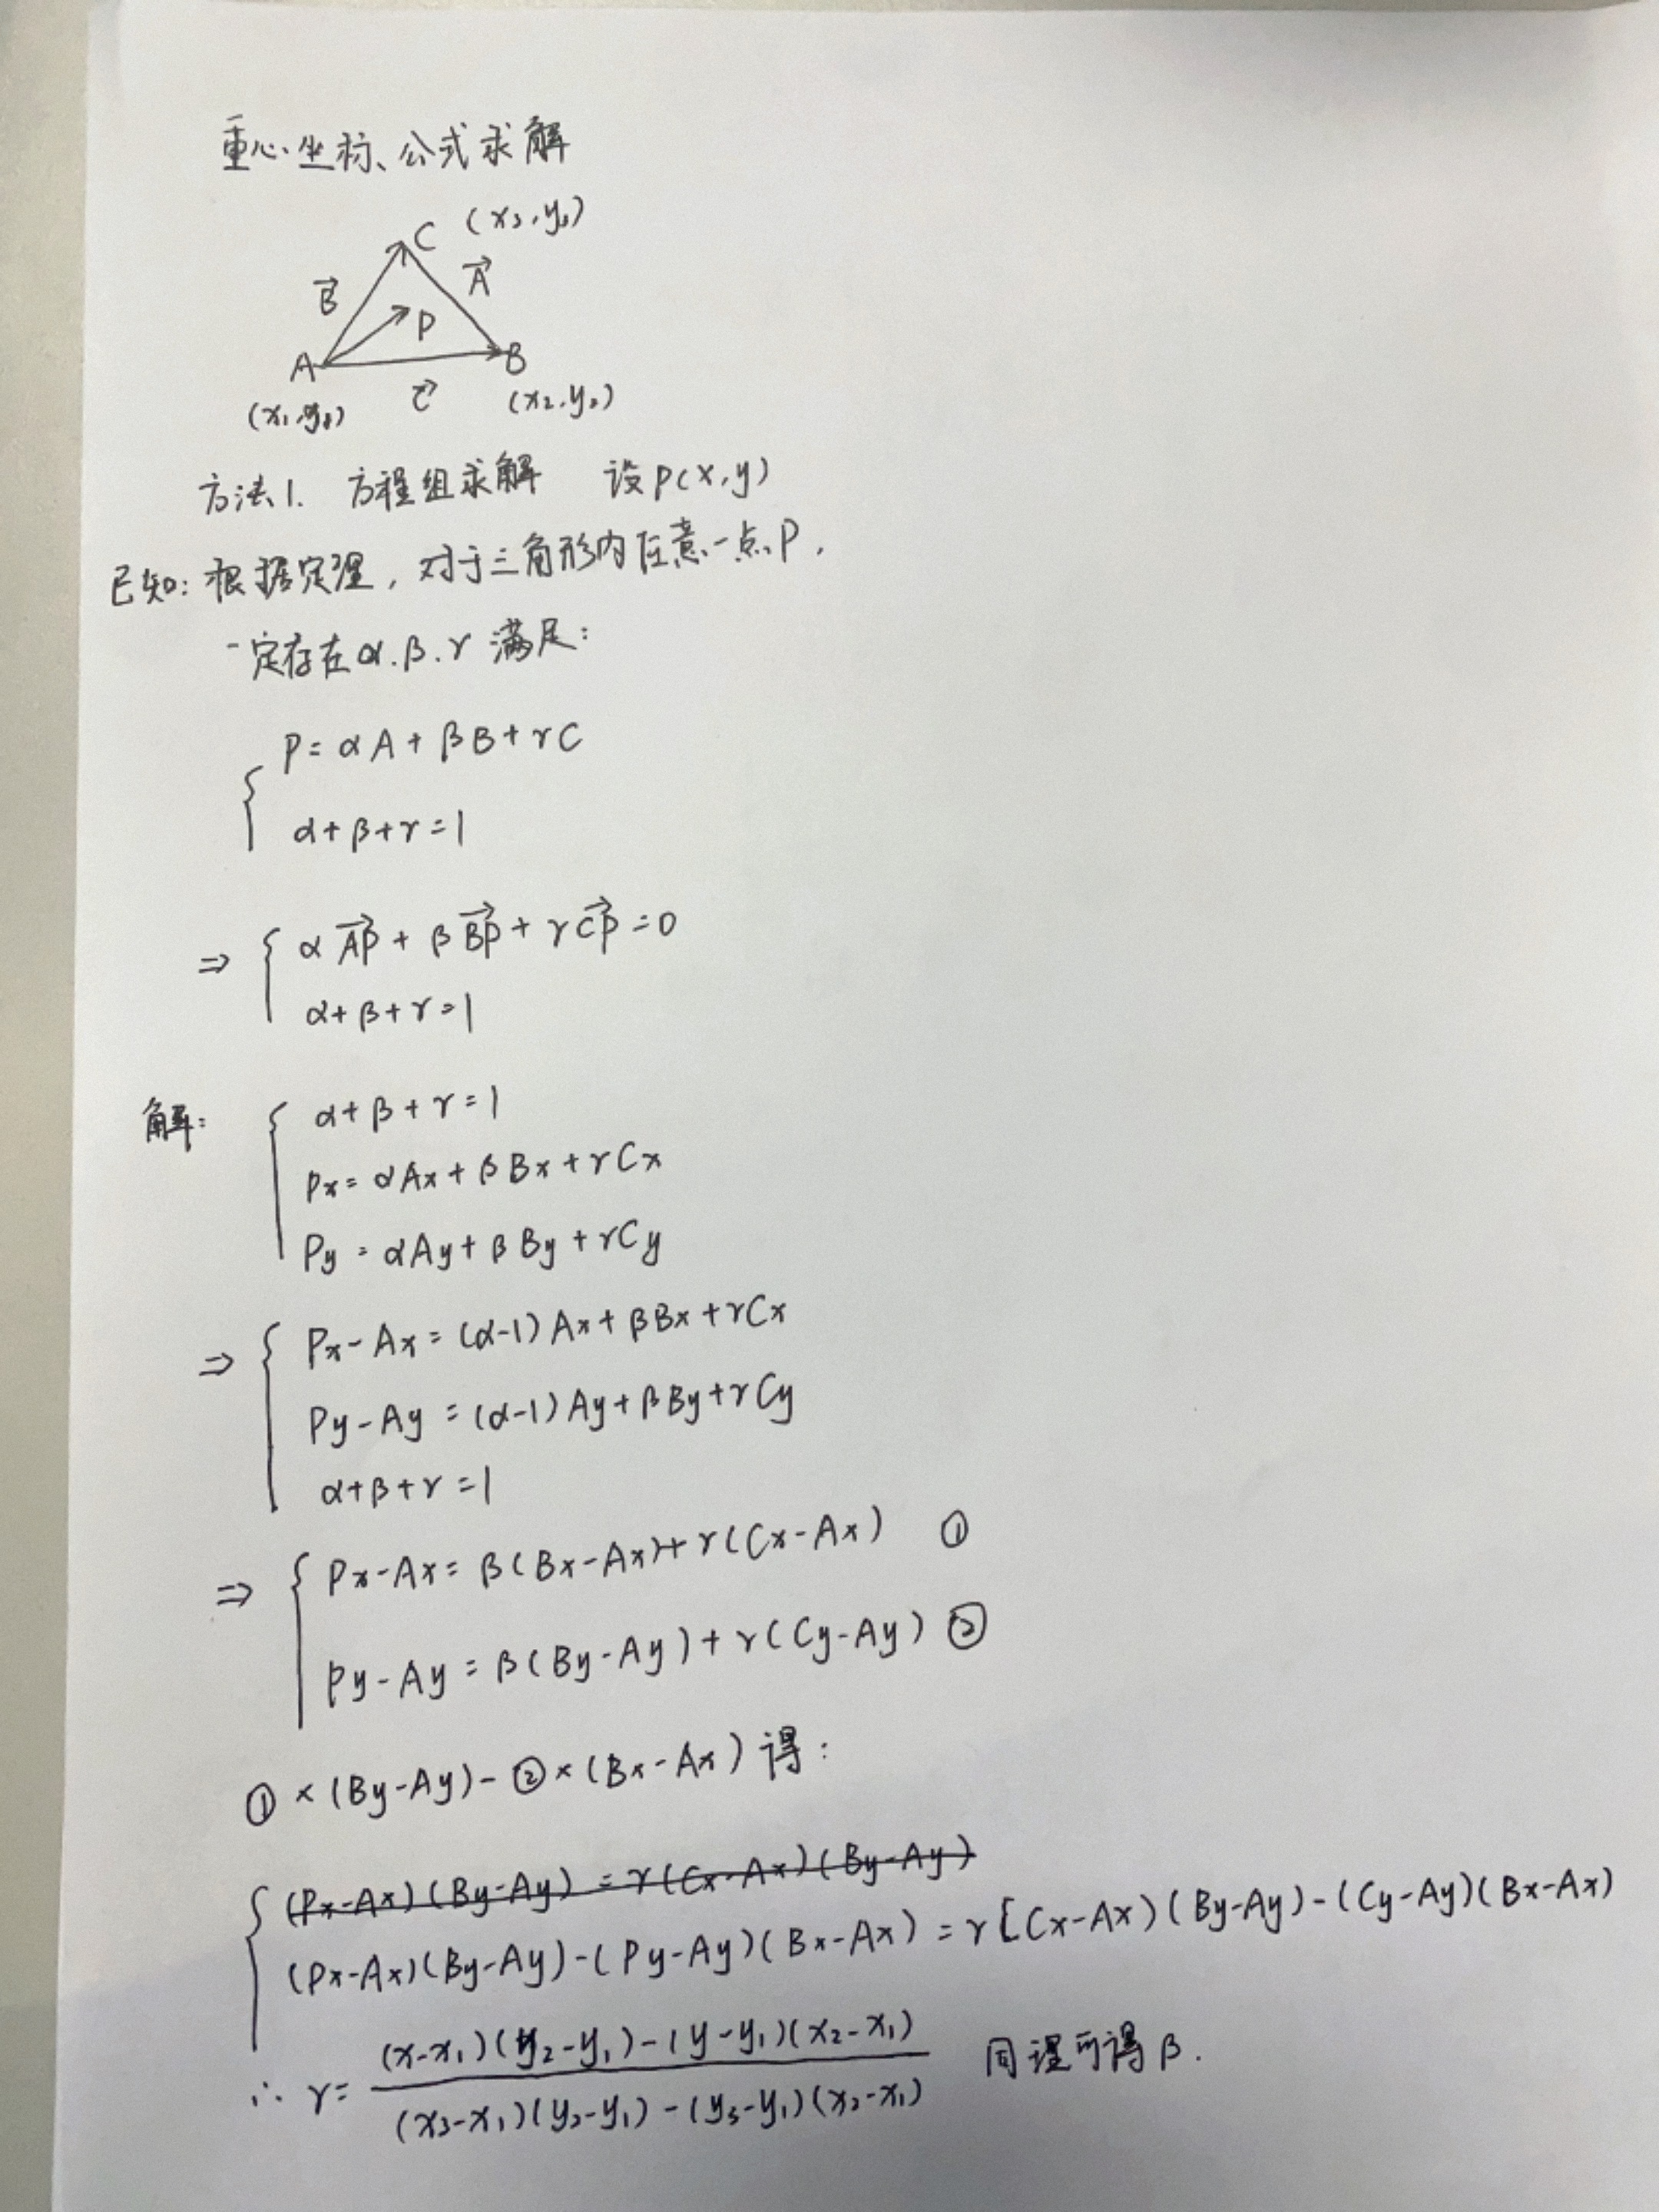 重心坐标、公式求解
C (x₃,y₃)
B⃗ A⃗
P
A B
(x₁,y₁) C⃗ (x₂,y₂)
方法1. 方程组求解 设P(x,y)
已知: 根据定理, 对于三角形内任意一点P,
一定存在α.β.γ 满足:
P=αA+βB+γC
α+β+γ=1
⇒ { αAP⃗+βBP⃗+γCP⃗=0
α+β+γ=1
解: { α+β+γ=1
Px=αAx+βBx+γCx
Py=αAy+βBy+γCy
⇒ { Px-Ax=(α-1)Ax+βBx+γCx
Py-Ay=(α-1)Ay+βBy+γCy
α+β+γ=1
⇒ { Px-Ax=β(Bx-Ax)+γ(Cx-Ax) ①
Py-Ay=β(By-Ay)+γ(Cy-Ay) ②
①×(By-Ay)-②×(Bx-Ax)得:
(Px-Ax)(By-Ay)=γ(Cx-Ax)(By-Ay)
(Px-Ax)(By-Ay)-(Py-Ay)(Bx-Ax)=γ[Cx-Ax)(By-Ay)-(Cy-Ay)(Bx-Ax)
(x-x₁)(y₂-y₁)-(y-y₁)(x₂-x₁)
∴ γ= 同理可得β.
(x₃-x₁)(y₂-y₁)-(y₃-y₁)(x₂-x₁)